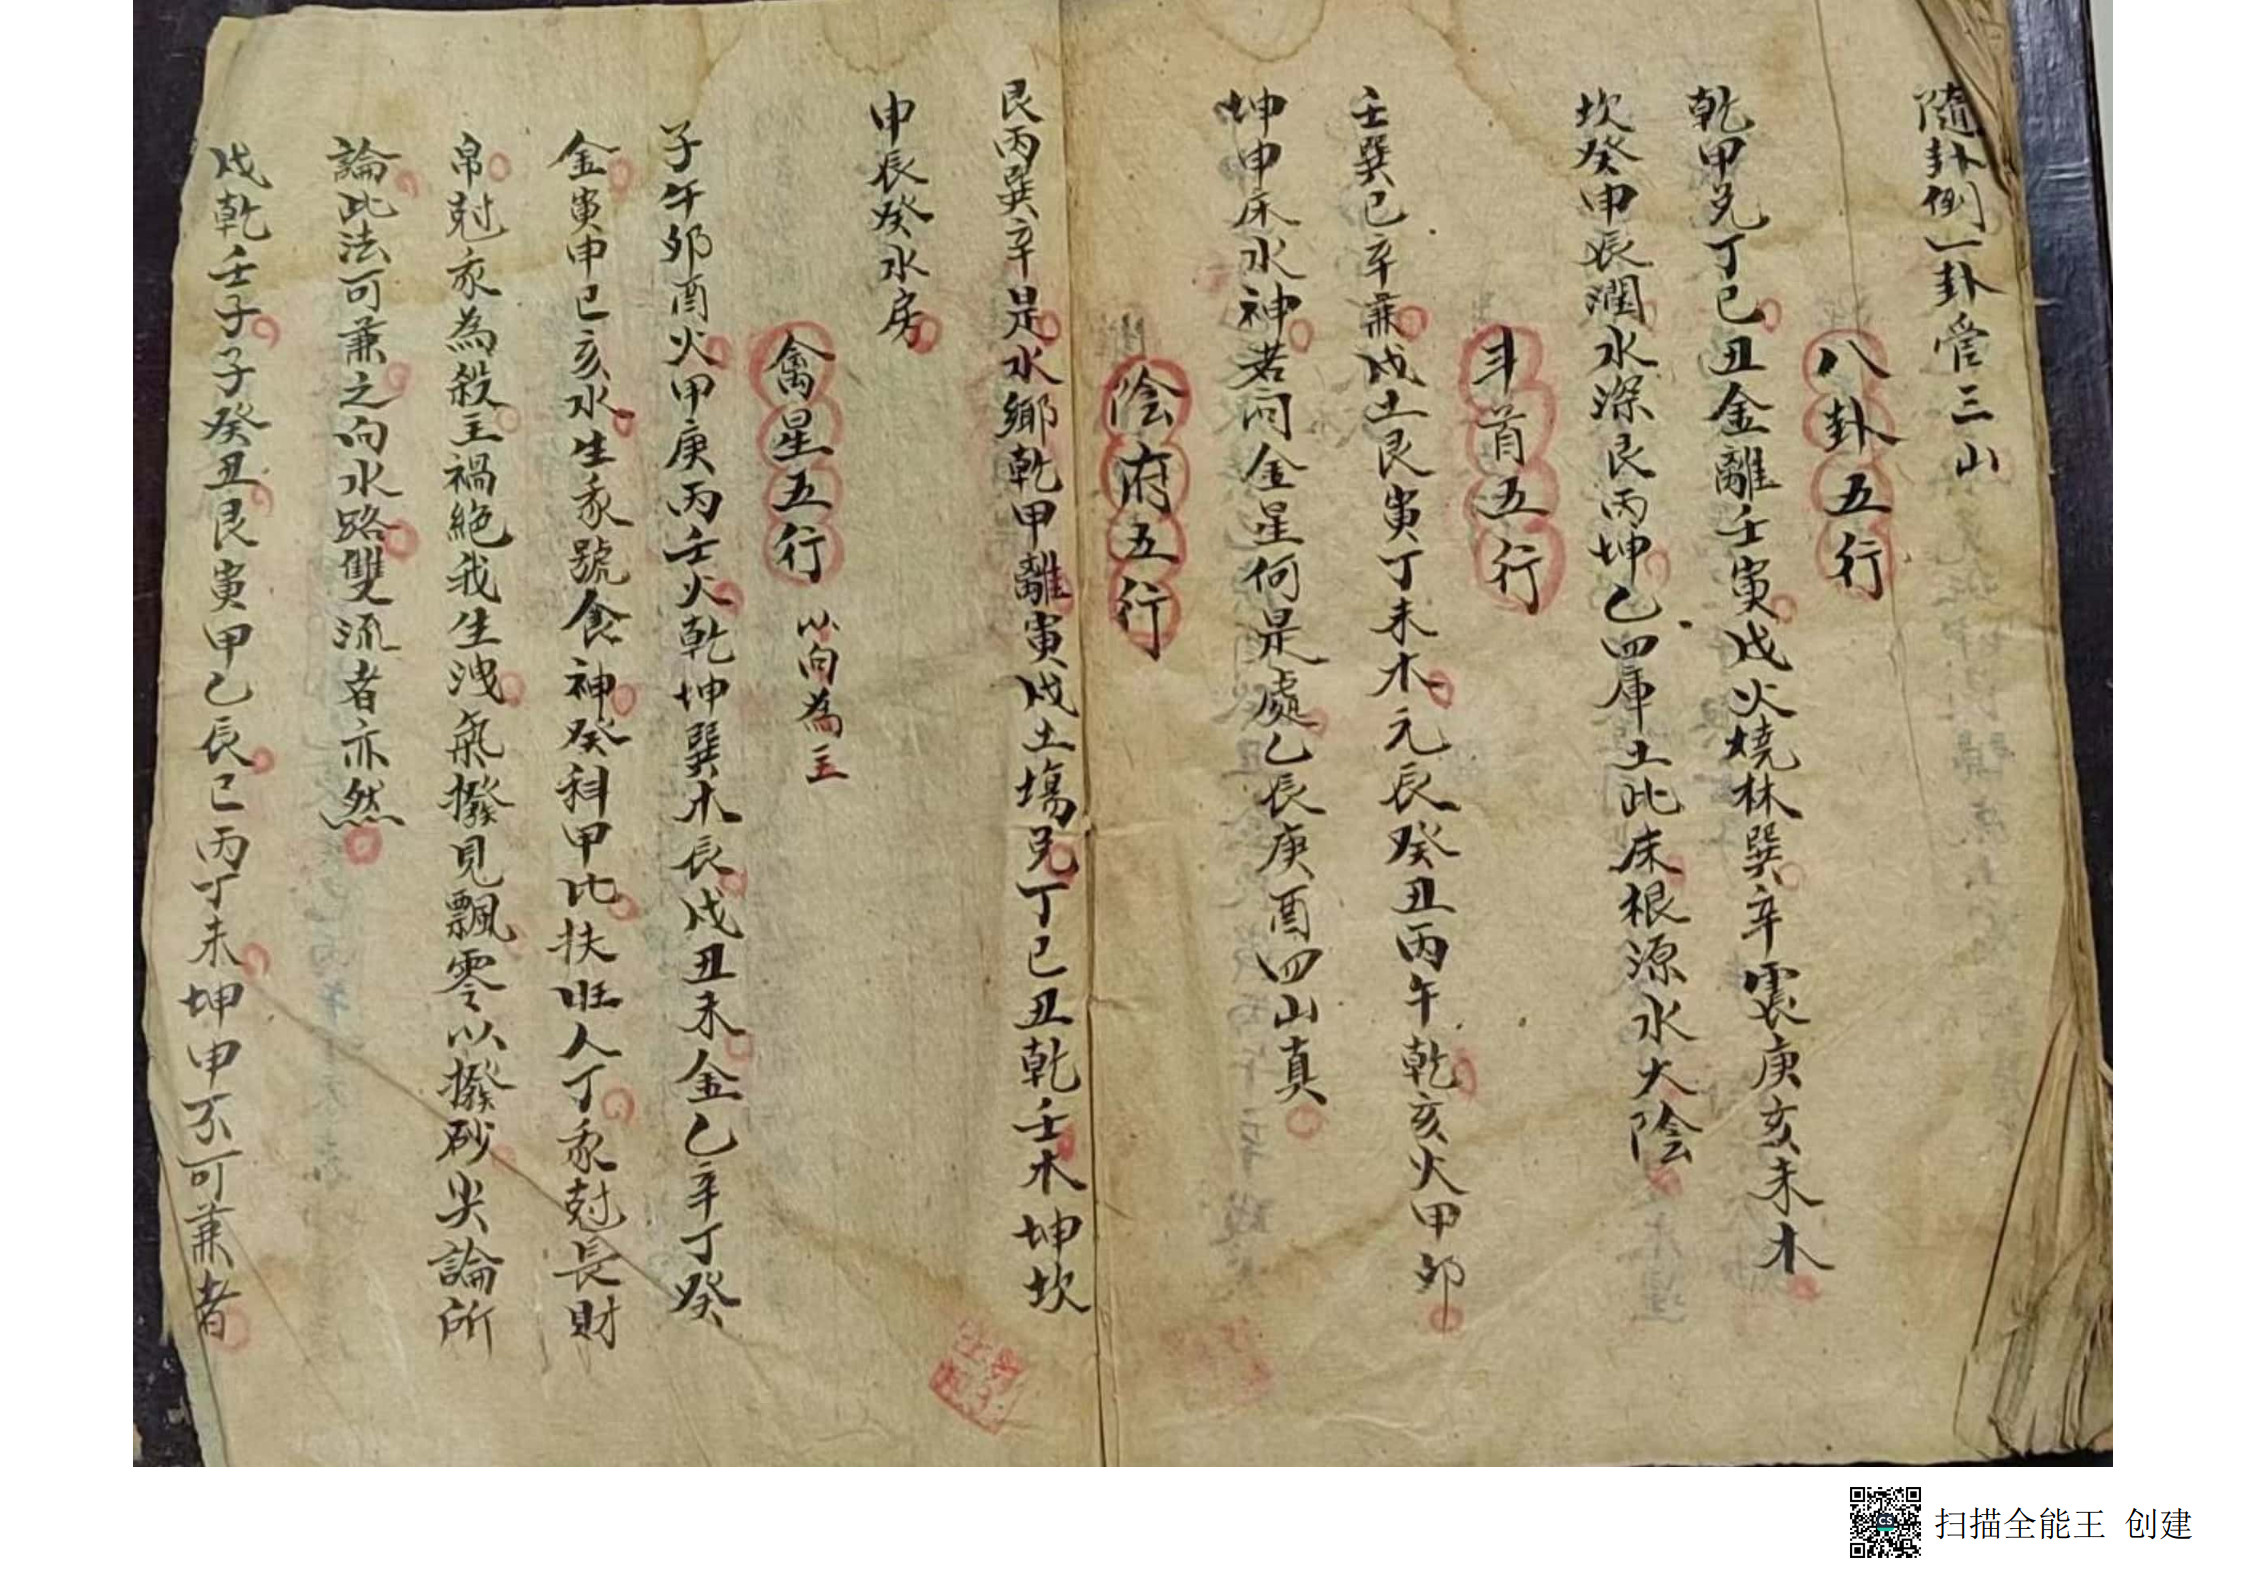 隨卦例一卦管三山
八卦五行
乾甲兑丁巳丑金離壬寅戌火燒林巽辛震庚亥未木
坎癸申辰潤水深艮丙坤乙四庫土此床根源水大陰
斗首五行
壬巽巳辛兼戌土艮寅丁未木元辰癸丑丙午乾亥火甲卯
坤申床水神若问金星何是處乙辰庚酉四山真
陰府五行
艮丙巽辛是水鄉乾甲離寅戌土塲兑丁巳丑乾壬木坤坎
申辰癸水房
禽星五行 以向為主
子午卯酉火甲庚丙壬火乾坤巽木辰戌丑未金乙辛丁癸
金寅申巳亥水生豕號食神癸科甲比扶旺人丁豕尅長財
帛尅豕為殺主禍絶我生洩氣撥見飄零以撥砂尖論所
論此法可兼之向水路雙流者亦然
戌乾壬子子癸丑艮寅甲乙辰巳丙丁未坤申不可兼者
扫描全能王 创建